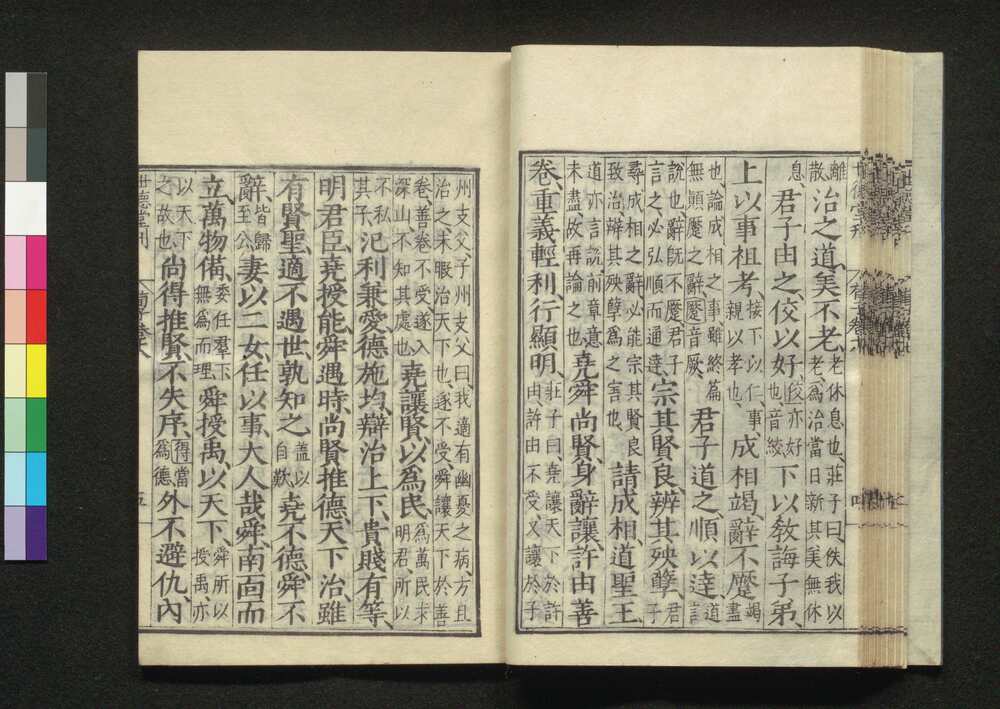 離散治之道、美不老、老休息也、莊子曰、佚我以老、爲治當日新其美無休
息、君子由之、佼以好、佼亦好也、音絞、下以敎誨子弟、
上以事祖考、接下以仁事親以孝也、成相竭辭不蹷、竭盡
也、論成相之事雖終篇無顚蹷之辭、蹷音厥、君子道之、順以達、道言
說也、辭旣不蹷、君子言之、必弘順而通達、宗其賢良、辨其殃孼、君子
尋成相之辭必能宗其賢良致治、辨其殃孼爲之言也、請成相、道聖王、
道亦言、言說前章意未盡、故再論之也、堯舜尚賢、身辭讓、許由善
卷、重義輕利、行顯明、莊子曰、堯讓天下於許由、許由不受、又讓於子
州支父、子州支父曰、我適有幽憂之病、方且治之、未暇治天下也、遂不受、舜讓天下於善
卷、善卷不受、遂入深山、不知其處也、堯讓賢、以爲民、爲萬民求明君、所以
不私其子、氾利兼愛、德施均、辯治上下、貴賤有等、
明君臣、堯授能、舜遇時、尚賢推德、天下治、雖
有賢聖、適不遇世、孰知之、蓋以自歎、堯不德、舜不
辭、皆歸至公、妻以二女、任以事、大人哉舜、南面而
立、萬物備、委任羣下、無爲而理、舜授禹、以天下、舜所以授禹、亦
以天下之故也、尚得推賢、不失序、得當爲德、外不避仇、內
世德堂刋
五